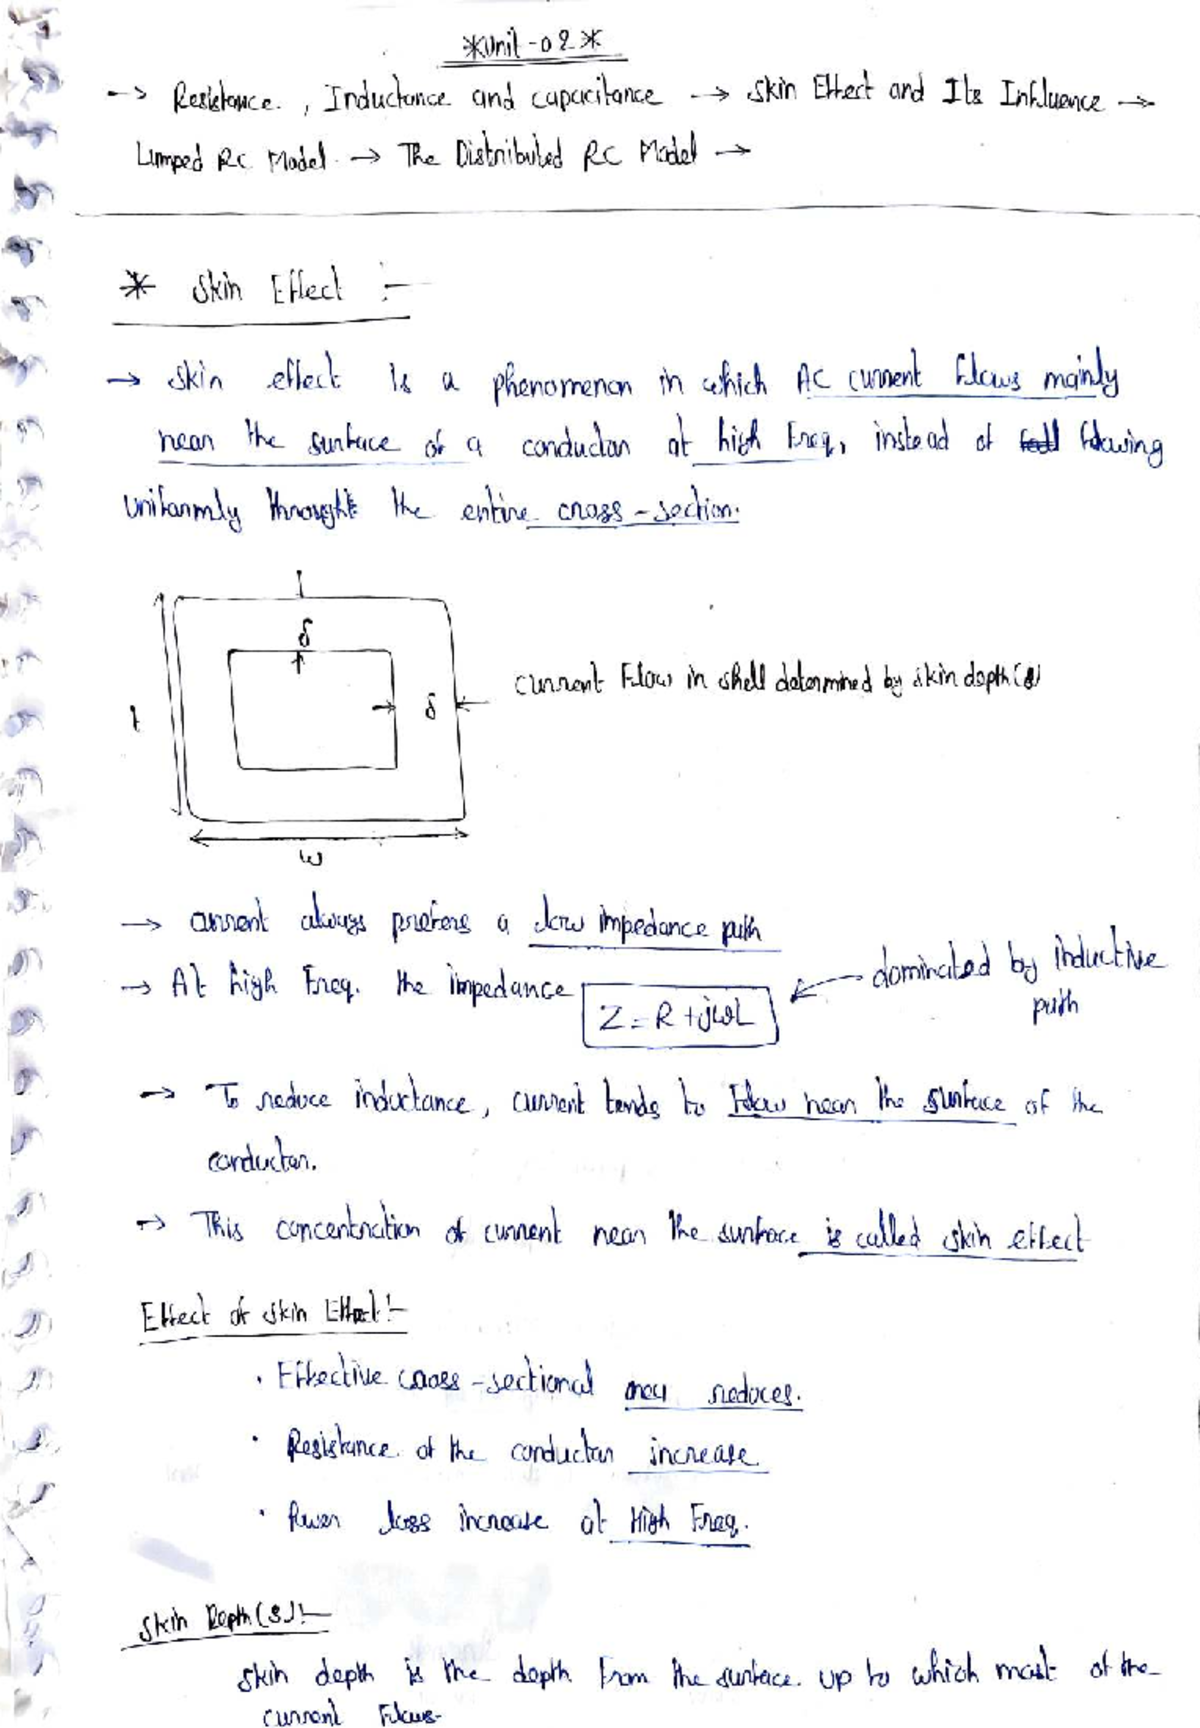 *Unit-02*
→ Resistance, Inductance and capacitance → Skin Effect and Its Influence →
Lumped RC Model → The Distributed RC Model →
* Skin Effect :-
→ Skin effect is a phenomenon in which AC current flows mainly
near the surface of a conductor at high Freq, instead of flowing
uniformly throught the entire cross-section.
δ
t
δ
current Flow in shell determined by skin depth(δ)
W
→ current always prefers a low impedance path
→ At high Freq. the impedance Z = R + jωL
dominated by inductive
path
→ To reduce inductance, current tends to Flow near the surface of the
conductor.
→ This concentration of current near the surface is called skin effect
Effect of skin Effect:-
· Effective cross-sectional area reduces.
· Resistance of the conductor increase
· Power loss increase at High Freq.
Skin Depth(δ):-
skin depth is the depth from the surface up to which most of the
current Flows.